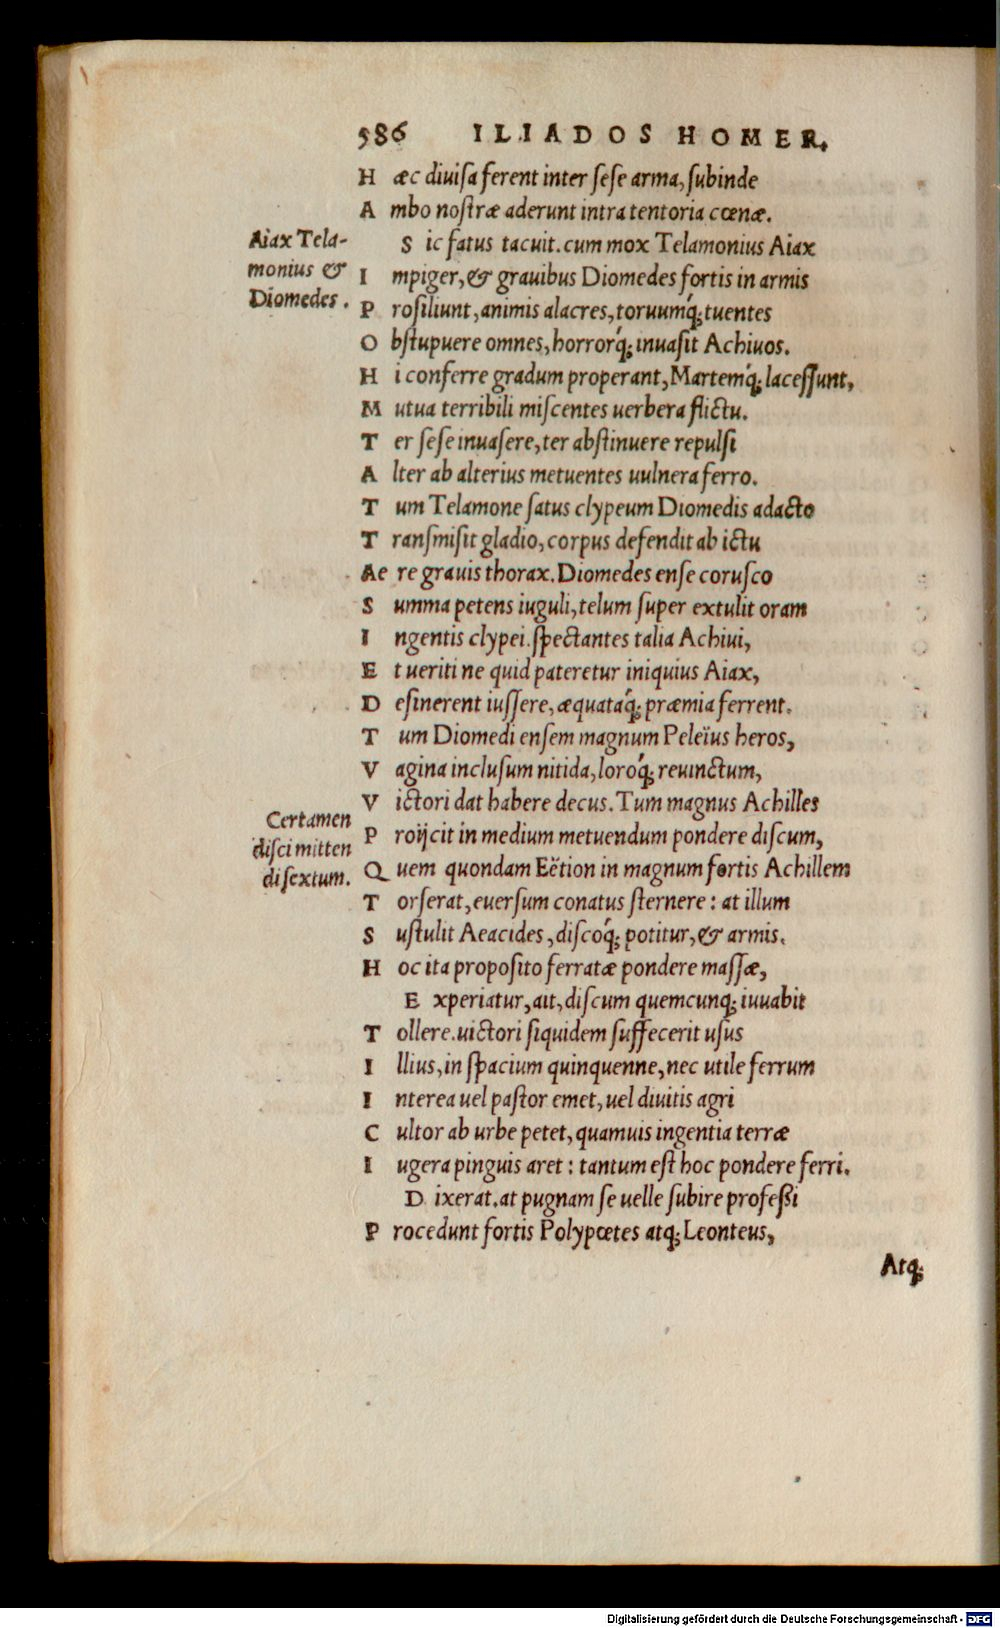 586 ILIADOS HOMER.
Hæc diuisa ferent inter sese arma, subinde
Ambo nostræ aderunt intra tentoria cœnæ.
Aiax Tela-
monius &
Diomedes.
Sic fatus tacuit. cum mox Telamonius Aiax
Impiger, & grauibus Diomedes fortis in armis
Prosiliunt, animis alacres, toruumq́; tuentes
Obstupuere omnes, horrorq́; inuasit Achiuos.
Hi conferre gradum properant, Martemq́; lacessunt,
Mutua terribili miscentes uerbera flictu.
Ter sese inuasere, ter abstinuere repulsi
Alter ab alterius metuentes uulnera ferro.
Tum Telamone satus clypeum Diomedis adacto
Transmisit gladio, corpus defendit ab ictu
Aere grauis thorax. Diomedes ense corusco
Summa petens iuguli, telum super extulit oram
Ingentis clypei. spectantes talia Achiui,
Et ueriti ne quid pateretur iniquius Aiax,
Desinerent iussere, æquataq́; præmia ferrent.
Tum Diomedi ensem magnum Peleïus heros,
Vagina inclusum nitida, loroq́; reuinctum,
Victori dat habere decus. Tum magnus Achilles
Certamen
disci mitten
di sextum.
Proijcit in medium metuendum pondere discum,
Quem quondam Eëtion in magnum fortis Achillem
Torserat, euersum conatus sternere: at illum
Sustulit Aeacides, discoq́; potitur, & armis.
Hoc ita proposito ferratæ pondere massæ,
Experiatur, ait, discum quemcunq; iuuabit
Tollere. uictori siquidem suffecerit usus
Illius, in spacium quinquenne, nec utile ferrum
Interea uel pastor emet, uel diuitis agri
Cultor ab urbe petet, quamuis ingentia terræ
Iugera pinguis aret: tantum est hoc pondere ferri.
Dixerat. at pugnam se uelle subire professi
Procedunt fortis Polypœtes atq; Leonteus,
Atq;
Digitalisierung gefördert durch die Deutsche Forschungsgemeinschaft - DFG